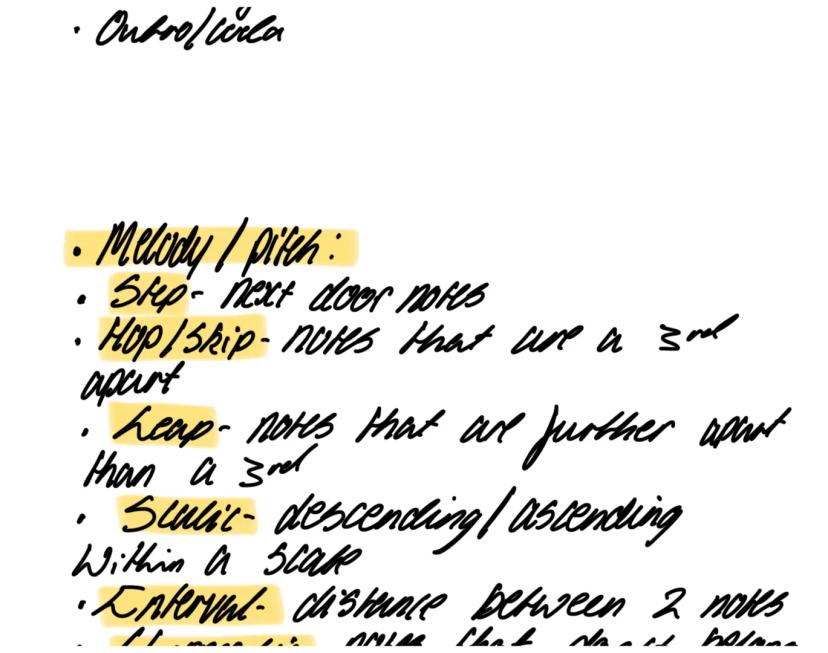 • Outro/coda
• Melody / pitch:
• Step- next door notes
• Hop/skip- notes that are a 3rd
apart
• Leap- notes that are further apart
than a 3rd
• Scalic- descending/ascending
within a scale
• Interval- distance between 2 notes
notes that don't belong